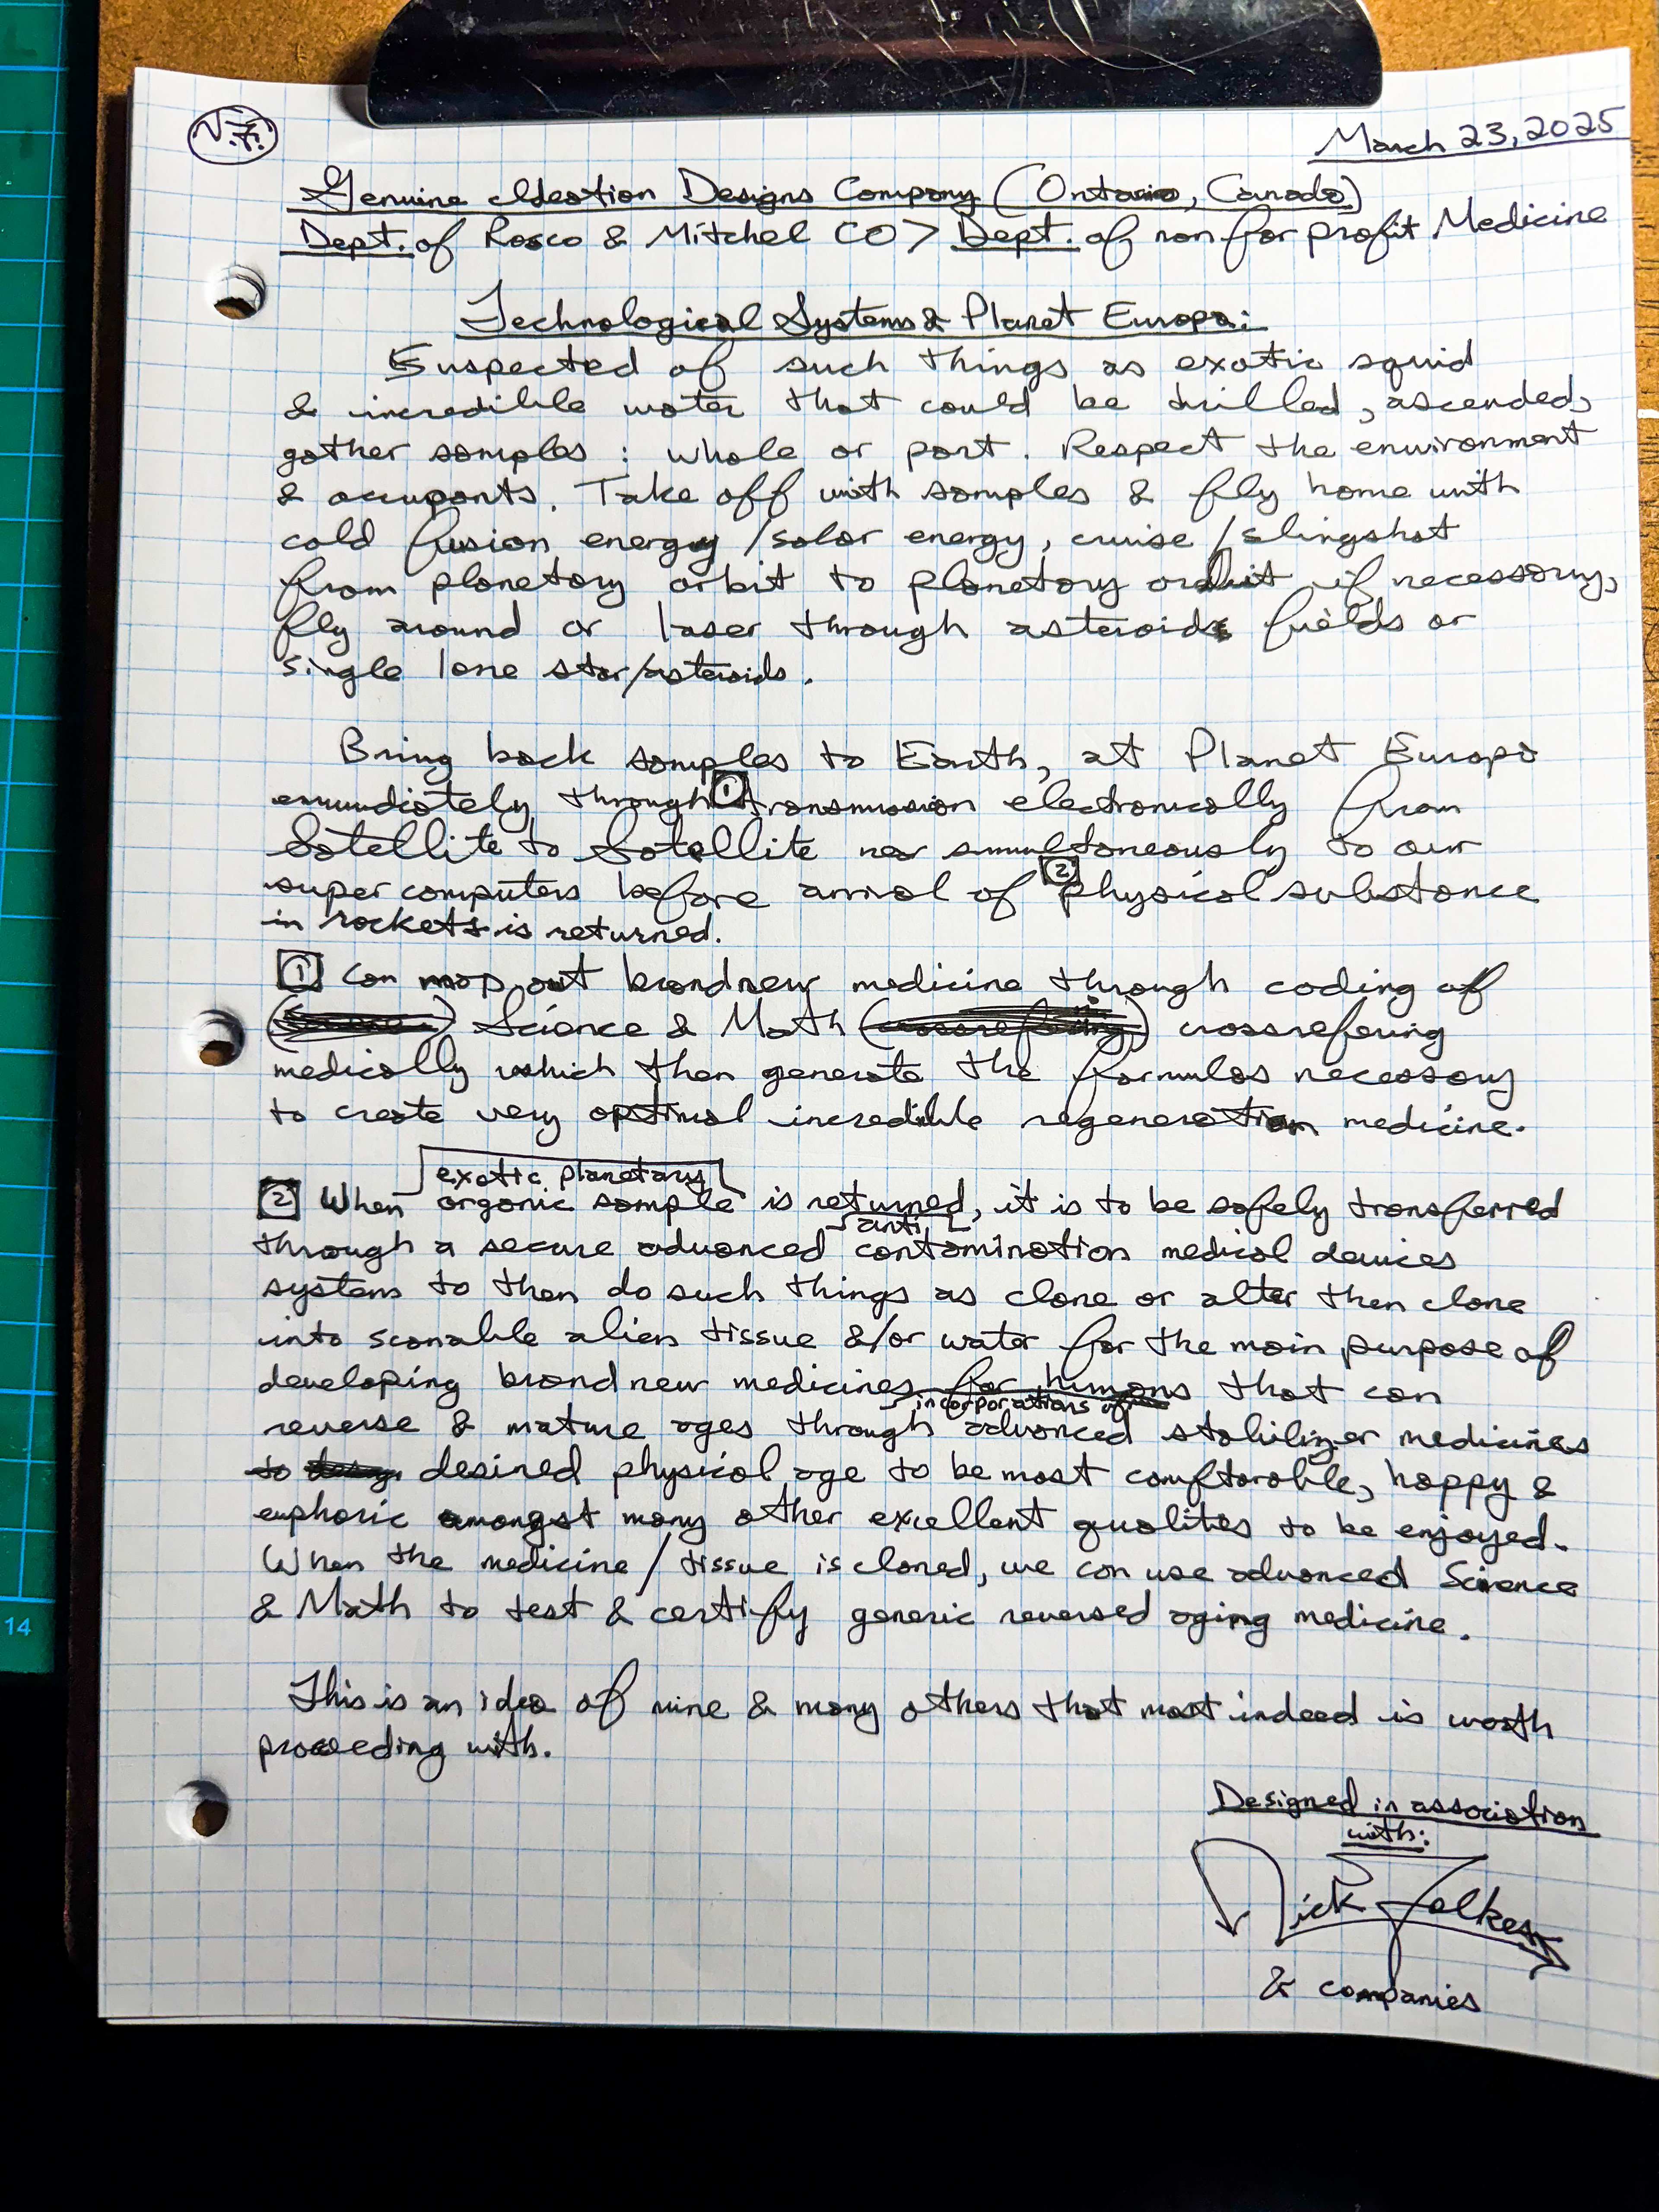 N.F.
March 23, 2025
Genuine Ideation Designs Company (Ontario, Canada)
Dept. of Rosco & Mitchel CO > Dept. of non for profit Medicine
Technological Systems & Planet Europa:
Suspected of such things as exotic squid
& incredible water that could be drilled, ascended,
gather samples : whole or part. Respect the environment
& occupants. Take off with samples & fly home with
cold fusion energy / solar energy, cruise / slingshot
from planetary orbit to planetary orbit if necessary,
fly around or laser through asteroids fields or
single lone star/asteroids.
Bring back samples to Earth, at Planet Europa
immediately through 1 transmission electronically from
Satellite to Satellite near simultaneously to our
super computers before arrival of 2 physical substance
in rockets is returned.
1 Can map out brandnew medicine through coding of
Science & Math (crossrefering) crossrefering
medically which then generate the formulas necessary
to create very optimal incredible regeneration medicine.
exotic planetary
2 When organic sample is returned, it is to be safely transferred
anti
through a secure advanced contamination medical devices
systems to then do such things as clone or alter then clone
into scanable alien tissue &/or water for the main purpose of
developing brandnew medicines for humans that can
incorporations of
reverse & mature ages through advanced stabilizer medicines
to desired physical age to be most comftorable, happy &
euphoric amongst many other excellent qualites to be enjoyed.
When the medicine / tissue is cloned, we can use advanced Science
& Math to test & certify generic reversed aging medicine.
This is an idea of mine & many others that most indeed is worth
proceeding with.
Designed in association
with:
Nick Folkes
& companies
14